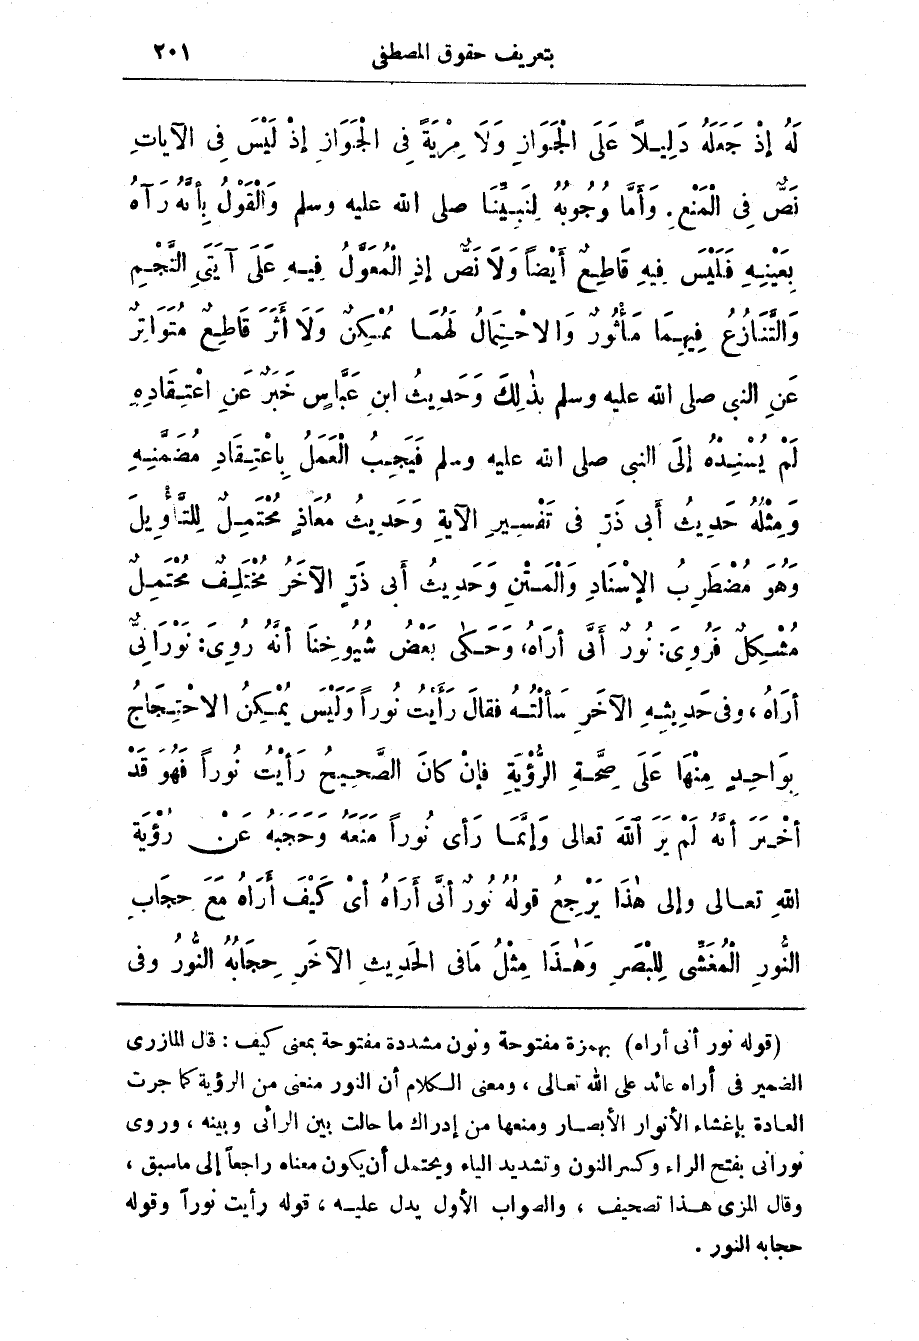 بتعريف حقوق المصطفى ٢٠١
لَهُ إذْ جَعَلَهُ دَلِيلاً عَلَى الْجَوَازِ وَلَا مِرْيَةَ فِى الْجَوَازِ إذْ لَيْسَ فِى الآيَاتِ
نَصٌّ فِى الْمَنْعِ. وَأَمَّا وُجُوبُهُ لِنَبِيِّنَا صلى الله عليه وسلم وَالْقَوْلُ بِأَنَّهُ رَآهُ
بِعَيْنِهِ فَلَيْسَ فِيهِ قَاطِعٌ أَيْضاً وَلَا نَصٌّ إذِ الْمُعَوَّلُ فِيهِ عَلَى آيَتَىِ النَّجْمِ
وَالتَّنَازُعُ فِيهِمَا مَأْثُورٌ وَالاحْتِمَالُ لَهُمَا مُمْكِنٌ وَلَا أَثَرَ قَاطِعٌ مُتَوَاتِرٌ
عَنِ النبى صلى الله عليه وسلم بذٰلِكَ وَحَدِيثُ ابنِ عَبَّاسٍ خَبَرٌ عَنِ اعْتِقَادِهِ
لَمْ يُسْنِدْهُ إلَى النبى صلى الله عليه وسلم فَيَجِبُ الْعَمَلُ بِاعْتِقَادِ مُضَمَّنِهِ
وَمِثْلُهُ حَدِيثُ أبى ذَرٍّ فى تَفْسِيرِ الآيةِ وَحَدِيثُ مُعَاذٍ مُحْتَمِلٌ لِلتَّأْوِيلِ
وَهُوَ مُضْطَرِبُ الإسْنَادِ وَالْمَتْنِ وَحَدِيثُ أبى ذَرٍّ الآخَرُ مُخْتَلِفٌ مُحْتَمِلٌ
مُشْكِلٌ فَرُوِىَ: نُورٌ أَنَّى أرَاهُ، وَحَكَى بَعْضُ شُيُوخِنَا أنَّهُ رُوِىَ: نَوْرَانِىٌّ
أرَاهُ، وفى حَدِيثِهِ الآخَرِ سَأَلْتُهُ فقالَ رَأَيْتُ نُوراً وَلَيْسَ يُمْكِنُ الاحْتِجَاجُ
بِوَاحِدٍ مِنْهَا عَلَى صِحَّةِ الرُّؤْيَةِ فإنْ كانَ الصَّحِيحُ رَأَيْتُ نُوراً فَهُوَ قَدْ
أخْبَرَ أنَّهُ لَمْ يَرَ اللهَ تعالى وَإنَّمَا رَأى نُوراً مَنَعَهُ وَحَجَبَهُ عَنْ رُؤْيَةِ
اللهِ تعالى وإلى هٰذَا يَرْجِعُ قولُهُ نُورٌ أنَّى أَرَاهُ أىْ كَيْفَ أَرَاهُ مَعَ حِجَابِ
النُّورِ الْمُغَشِّى لِلْبَصَرِ وَهٰذَا مِثْلُ مَافى الحَدِيثِ الآخَرِ حِجَابُهُ النُّورُ وفى
(قوله نور أنى أراه) بهمزة مفتوحة ونون مشددة مفتوحة بمعنى كيف : قال المازرى
الضمير فى أراه عائد على الله تعالى ، ومعنى الكلام أن النور منعنى من الرؤية كما جرت
العادة بإغشاء الأنوار الأبصار ومنعها من إدراك ما حالت بين الرائى وبينه ، وروى
نورانى بفتح الراء وكسر النون وتشديد الياء ويحتمل أن يكون معناه راجعاً إلى ماسبق ،
وقال المزى هذا تصحيف ، والصواب الأول يدل عليه ، قوله رأيت نوراً وقوله
حجابه النور .